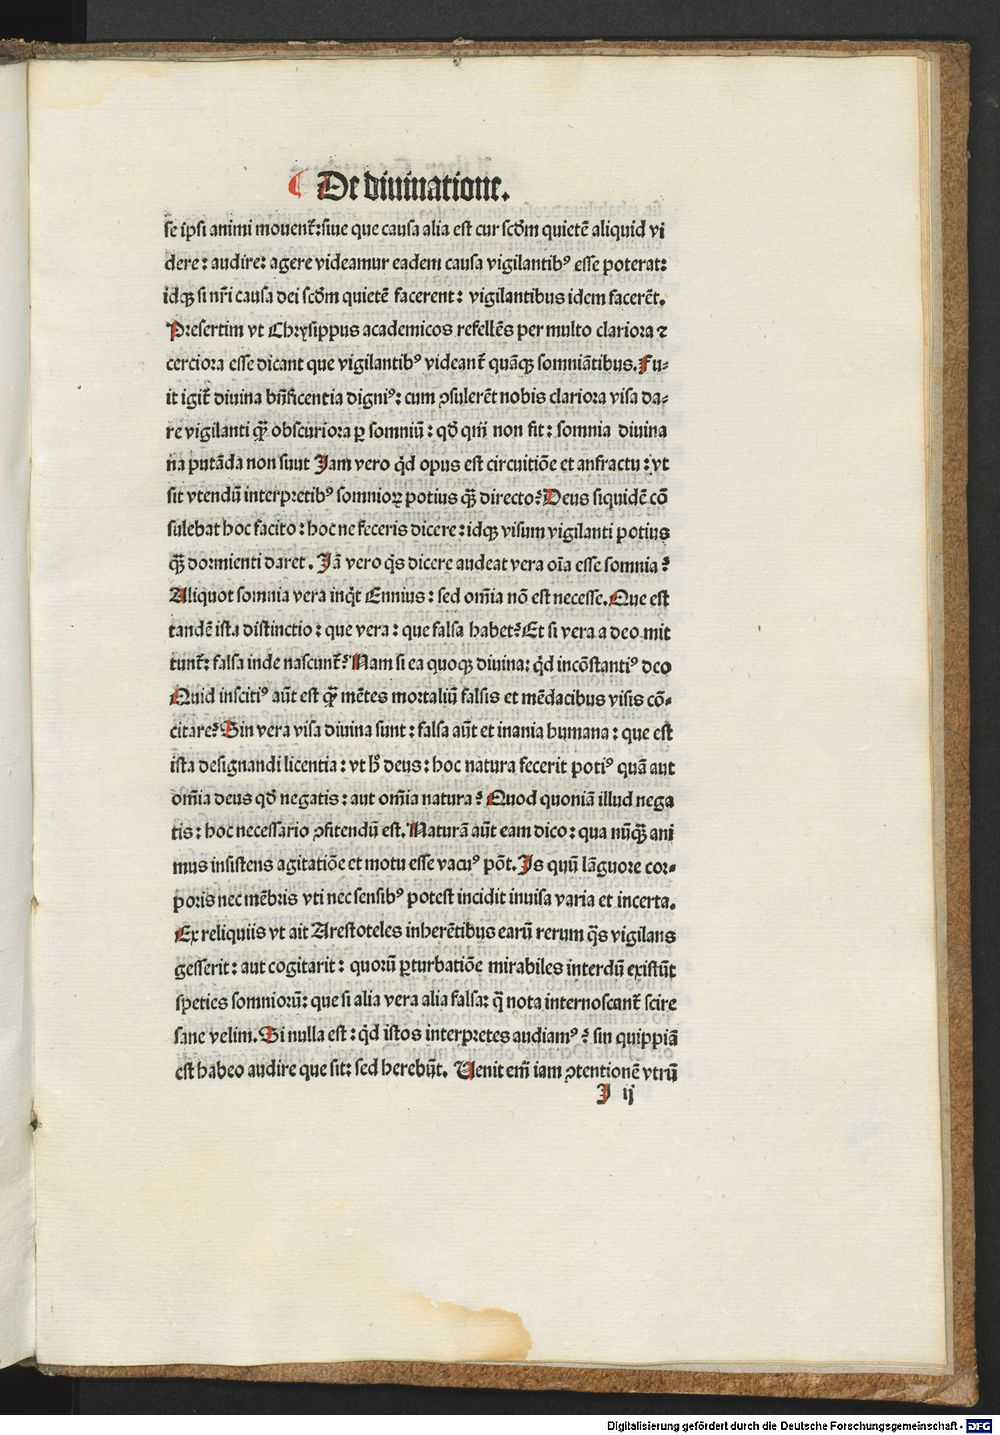 De diuinatione.
se ipsi animi mouent̃: siue que causa alia est cur scďm quietẽ aliquid vi
dere: audire: agere videamur eadem causa vigilantibꝰ esse poterat:
idqꝫ si nr̃i causa dei scďm quietẽ facerent: vigilantibus idem facerẽt.
Presertim vt Chrysippus academicos refellẽs per multo clariora ⁊
cerciora esse dicant que vigilantibꝰ videant̃ quãqꝫ somniãtibus. Fu⸗
it igit̃ diuina bñficentia digniꝰ: cum ꝯsulerẽt nobis clariora visa da⸗
re vigilanti qꝫ̃ obscuriora ꝑ somniũ: qď qm̃ non fit: somnia diuina
na putãda non sunt Jam vero qͥd opus est circuitiõe et anfractu: vt
sit vtendũ interpretibꝰ somnioꝝ potius qꝫ̃ directo? Deus siquidẽ cõ
sulebat hoc facito: hoc ne feceris dicere: idqꝫ visum vigilanti potius
qꝫ̃ dormienti daret. Jã vero qͥs dicere audeat vera oĩa esse somnia?
Aliquot somnia vera inqͥt Ennius: sed om̃ia nõ est necesse. Que est
tandẽ ista distinctio: que vera: que falsa habet? Et si vera a deo mit
tunt̃: falsa inde nascunt̃? Nam si ea quoqꝫ diuina: qͥd incõstantiꝰ deo
Quid inscitiꝰ aũt est qꝫ̃ mẽtes mortaliũ falsis et mẽdacibus visis cõ⸗
citare? Sin vera visa diuina sunt: falsa aũt et inania humana: que est
ista designandi licentia: vt hͦ deus: hoc natura fecerit potiꝰ quã aut
om̃ia deus qď negatis: aut om̃ia natura? Quod quoniã illud nega
tis: hoc necessario ꝯfitendũ est. Naturã aũt eam dico: qua nũqꝫ̃ ani
mus insistens agitatiõe et motu esse vacuꝰ põt. Js quũ lãguore cor⸗
poris nec mẽbris vti nec sensibꝰ potest incidit inuisa varia et incerta.
Ex reliquiis vt ait Arestoteles inherẽtibus earũ rerum q̃s vigilans
gesserit: aut cogitarit: quorũ ꝑturbatiõe mirabiles interdũ existũt
speties somniorũ: que si alia vera alia falsa: q̃ nota internoscant̃ scire
sane velim. Si nulla est: qͥd istos interpretes audiamꝰ? sin quippiã
est habeo audire que sit: sed herebũt. Uenit em̃ iam ꝯtentionẽ vtrũ
J ij
Digitalisierung gefördert durch die Deutsche Forschungsgemeinschaft - DFG